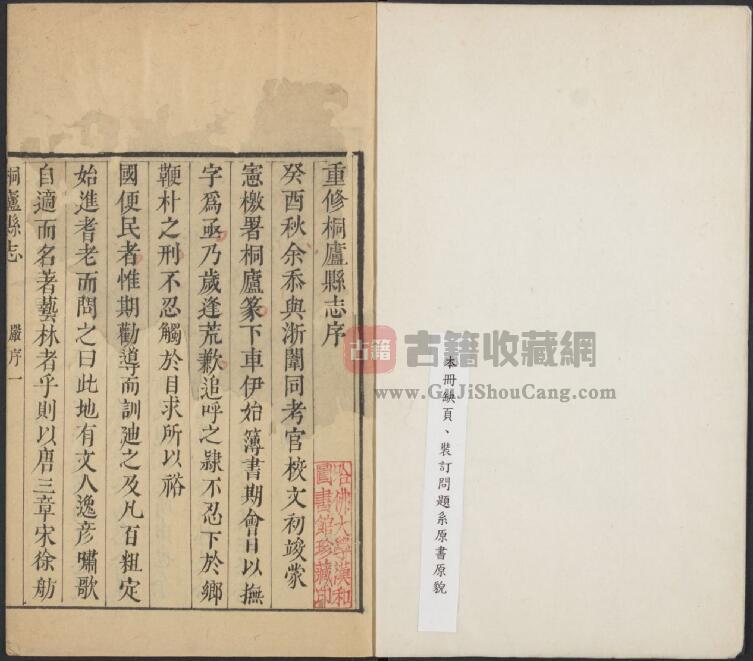 重修桐廬縣志序
癸酉秋余忝與浙闈同考官校文初竣蒙
憲檄署桐廬篆下車伊始簿書期會日以撫
字爲亟乃歲逢荒歉追呼之隷不忍下於鄉
鞭朴之刑不忍觸於目求所以裕
國便民者惟期勸導而訓廸之及凡百粗定
始進耆老而問之曰此地有文人逸彦嘯歌
自適而名著藝林者乎則以唐三章宋徐舫
桐廬縣志 嚴序 一
哈佛大學漢和
圖書館珍藏印
本冊缺頁、裝訂問題系原書原貌
古籍 古籍收藏網
www.GuJiShouCang.com